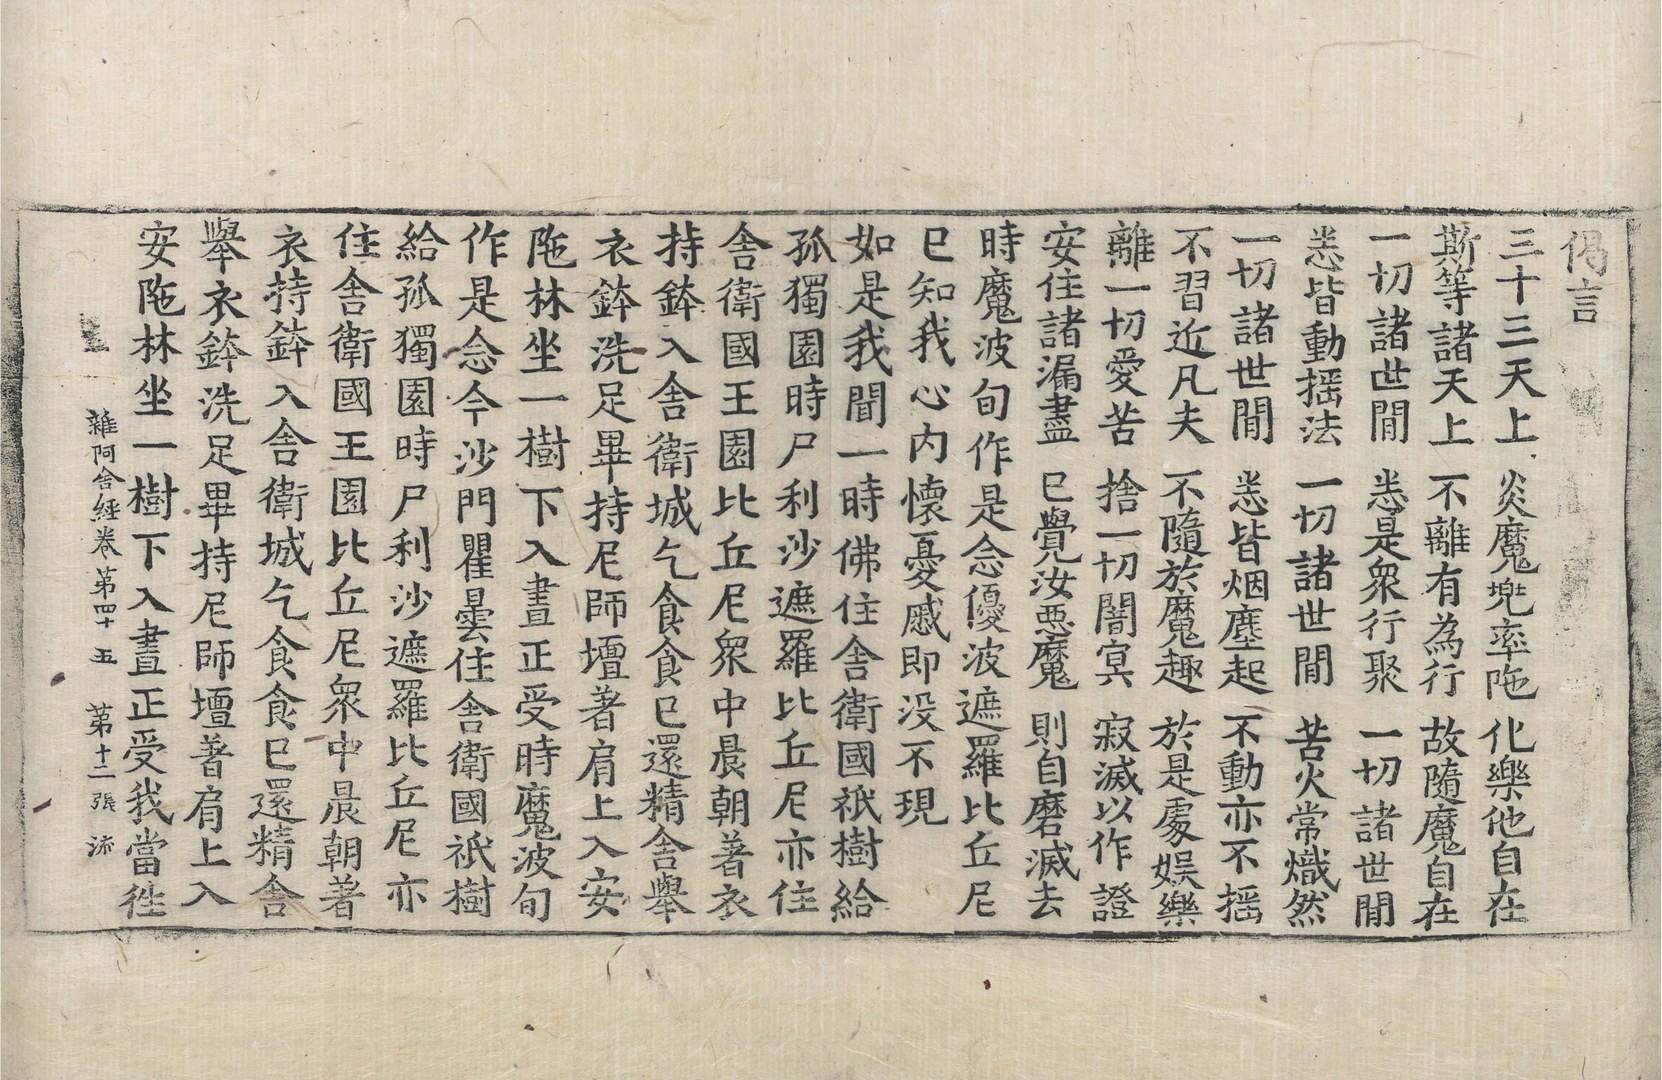 偈言
三十三天上 炎魔兜率陁 化樂他自在
斯等諸天上 不離有為行 故隨魔自在
一切諸世間 悉是衆行聚 一切諸世間
悉皆動揺法 一切諸世間 苦火常熾然
一切諸世間 悉皆烟塵起 不動亦不揺
不習近凡夫 不隨於魔趣 於是處娛樂
離一切愛苦 捨一切闇冥 寂滅以作證
安住諸漏盡 已覺汝惡魔 則自磨滅去
時魔波旬作是念優波遮羅比丘尼
已知我心內懷憂慼即没不現
如是我聞一時佛住舍衛國祇樹給
孤獨園時尸利沙遮羅比丘尼亦住
舍衛國王園比丘尼衆中晨朝著衣
持鉢入舍衛城乞食食已還精舍舉
衣鉢洗足畢持尼師壇著肩上入安
陁林坐一樹下入晝正受時魔波旬
作是念今沙門瞿曇住舍衛國祇樹
給孤獨園時尸利沙遮羅比丘尼亦
住舍衛國王園比丘尼衆中晨朝著
衣持鉢入舍衛城乞食食已還精舍
舉衣鉢洗足畢持尼師壇著肩上入
安陁林坐一樹下入晝正受我當徃
雜阿含經卷第四十五 第十二張 流